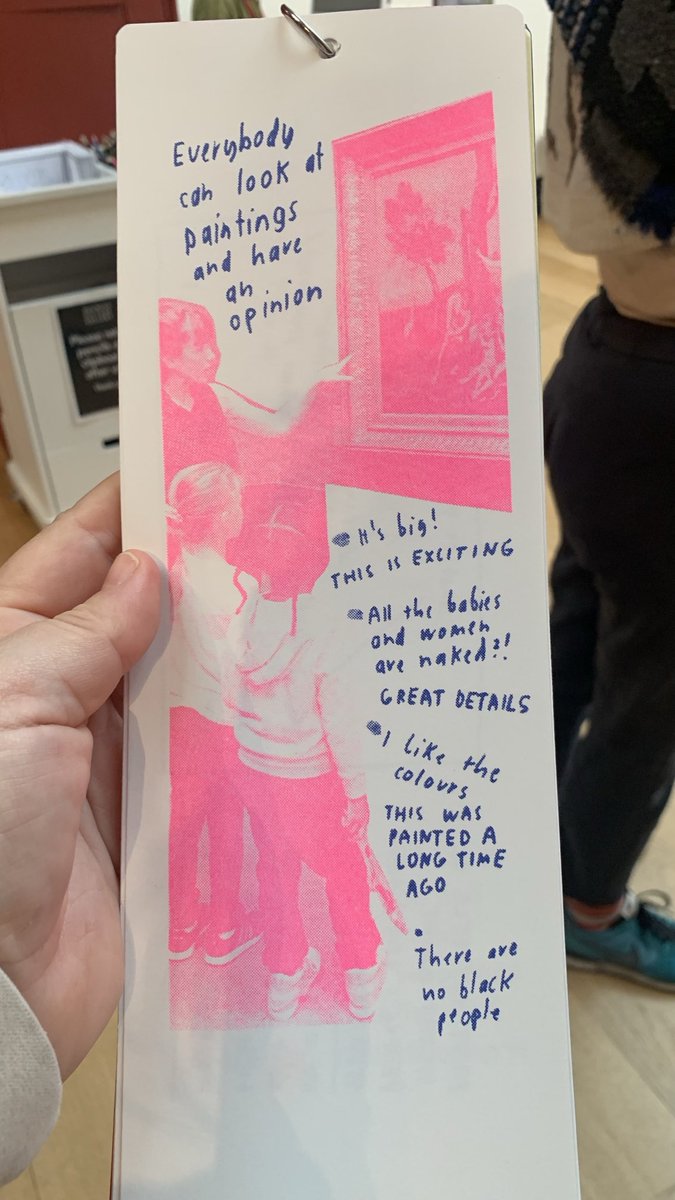 Everybody
can look at
paintings
and have
an
opinion
It's big!
THIS IS EXCITING
All the babies
and women
are naked?!
GREAT DETAILS
I like the
colours
THIS WAS
PAINTED A
LONG TIME
AGO
There are
no black
people